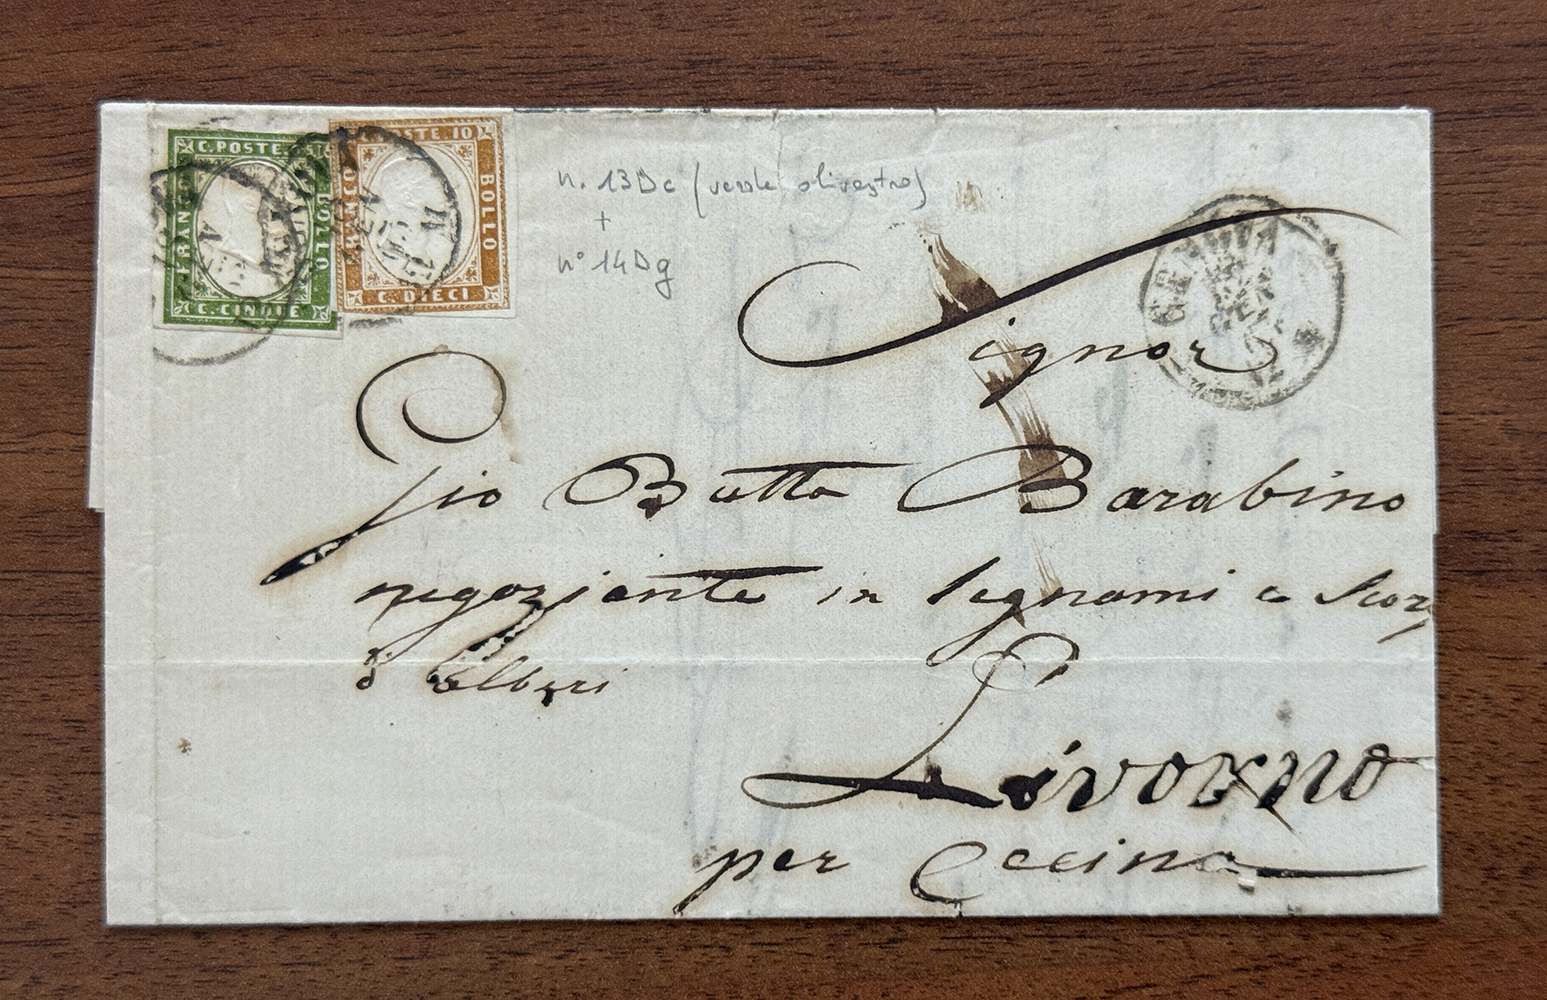 C. POSTE
FRANCO
BOLLO
C. CINQUE
POSTE 10
FRANCO
BOLLO
C. DIECI
n. 13Dc (verde olivastro)
+
n° 14Dg
GENOVA
Signor
Gio Batta Barabino
negoziante in legnami a
d'Alberi
Livorno
per Cecina